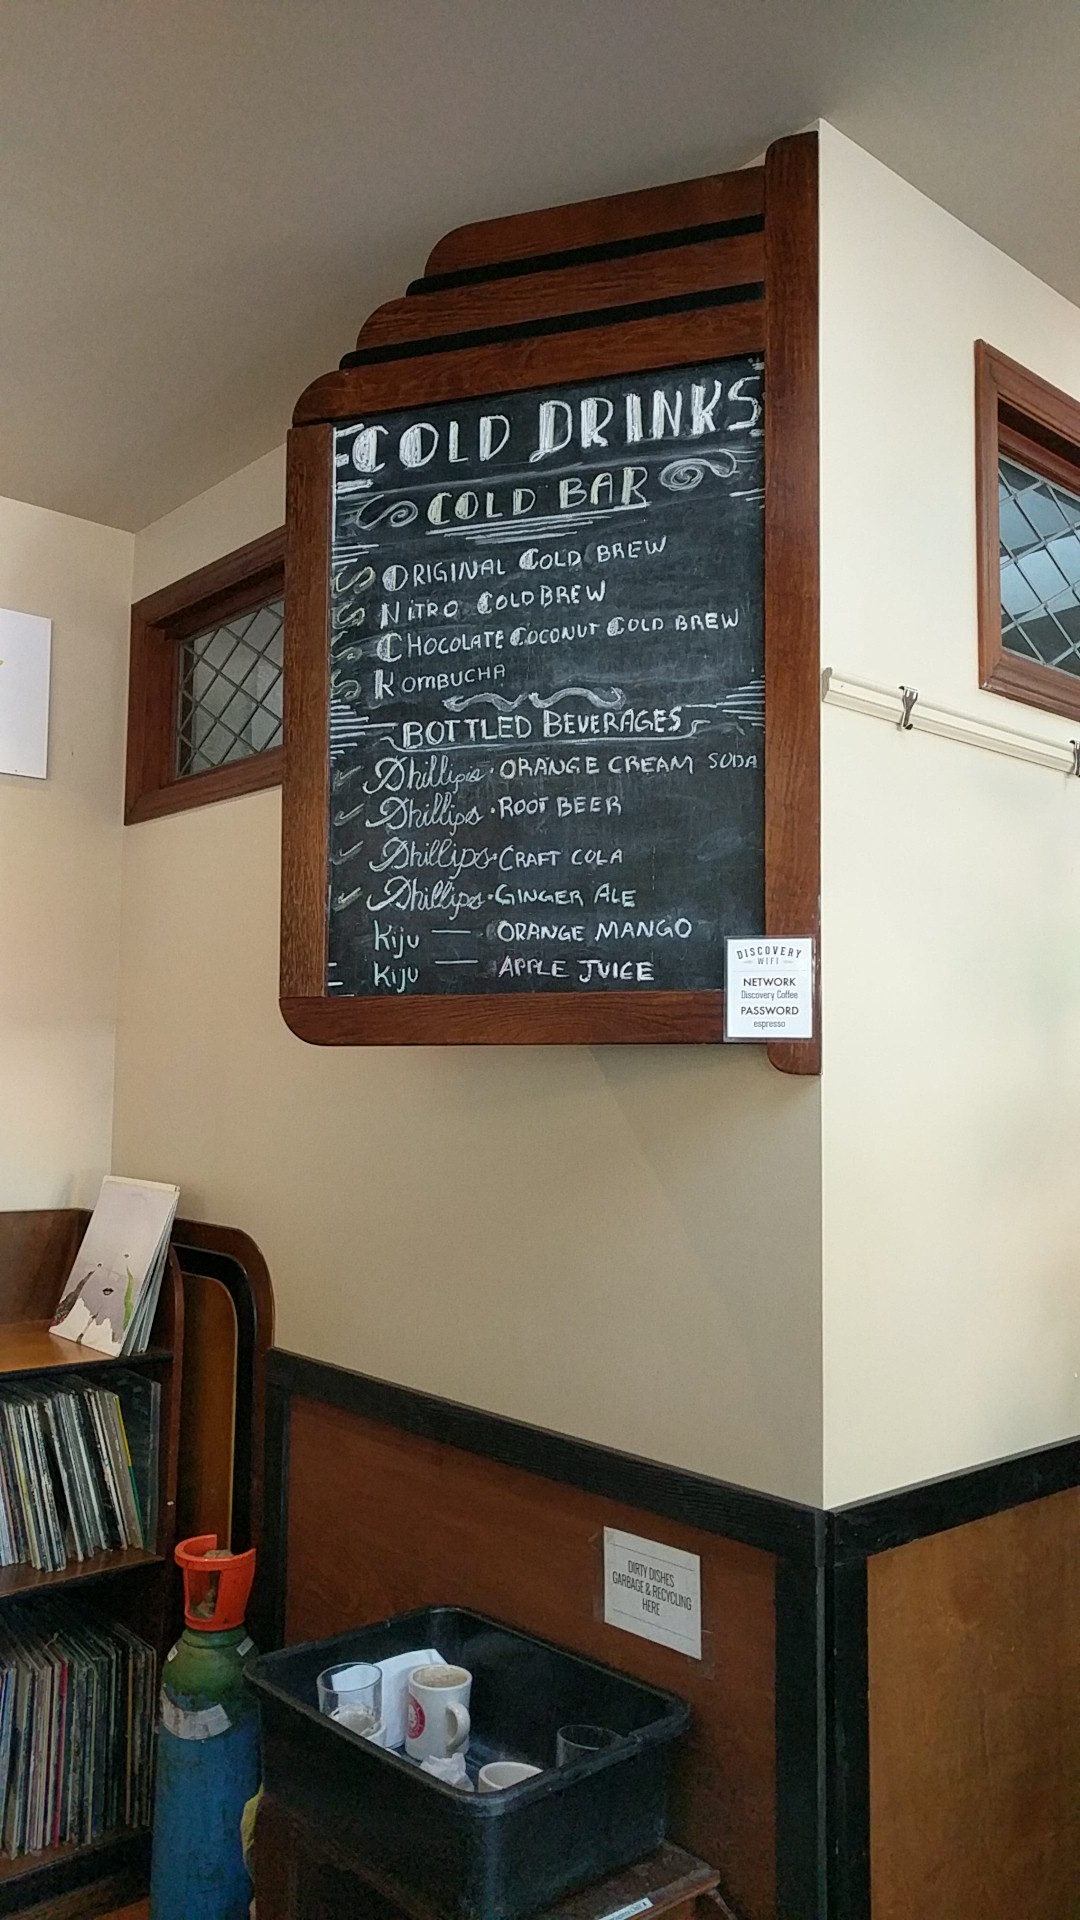 COLD DRINKS
COLD BAR
ORIGINAL COLD BREW
NITRO COLD BREW
CHOCOLATE COCONUT COLD BREW
KOMBUCHA
BOTTLED BEVERAGES
Phillips · ORANGE CREAM SODA
Phillips · ROOT BEER
Phillips · CRAFT COLA
Phillips · GINGER ALE
Kiju — ORANGE MANGO
Kiju — APPLE JUICE
DISCOVERY
WIFI
NETWORK
Discovery Coffee
PASSWORD
espresso
DIRTY DISHES
GARBAGE & RECYCLING
HERE